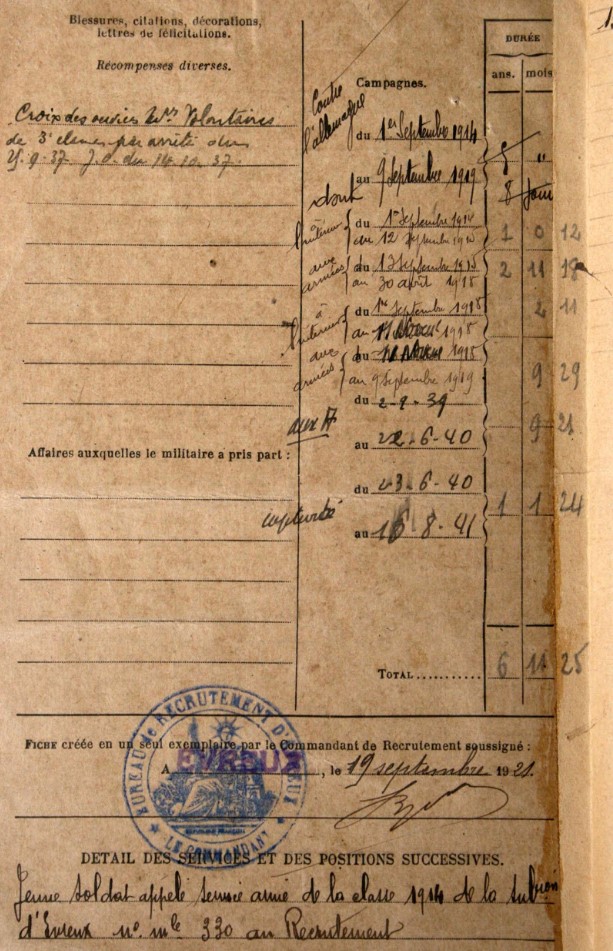 Blessures, citations, décorations,
lettres de félicitations.
Récompenses diverses.
Croix des services Mres Volontaires
de 3e classe par arrêté du
25.9.37. J.O. du 14.10.37.
Affaires auxquelles le militaire a pris part :
DURÉE
ans. mois
Campagnes.
Contre
l'allemagne
du 1er Septembre 1914
au 9 Septembre 1919
5 "
dont
8 jours
à
l'intérieur
du 1er Septembre 1914
au 12 Septembre 1915
1 0 12
aux
armées
du 13 Septembre 1915
au 30 avril 1918
2 11 18
à
l'intérieur
du 1er Septembre 1918
au 11 1918
2 11
aux
armées
du 1918
au 9 Septembre 1919
9 29
aux A
du 2-9-39
au 22-6-40
9 21
captivité
du 23-6-40
au 16-8-41
1 1 24
TOTAL..........
6 11 25
FICHE créée en un seul exemplaire par le Commandant de Recrutement soussigné :
A EVREUX, le 19 septembre 1921.
BUREAU de RECRUTEMENT D'EVREUX
LE COMMANDANT
DETAIL DES SERVICES ET DES POSITIONS SUCCESSIVES.
Jeune soldat appelé service armé de la classe 1914 de la subion
d'Evreux no. mle 330 au Recrutement